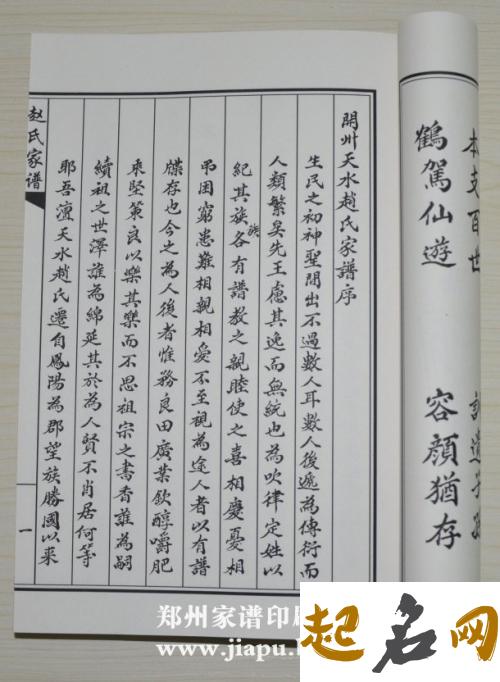 本支百世
鶴駕仙遊 容顔猶存
開州天水趙氏家譜序
生民之初神聖間出不過數人耳數人後遞為傳衍而
人類繁矣先王慮其逸而無統也為吹律定姓以
紀其族族各有譜教之親睦使之喜相慶憂相
吊困窮患難相親相愛不至視為途人者以有譜
牒存也今之為人後者惟務良田廣業飲醇嚼肥
乘堅策良以樂其樂而不思祖宗之書香誰為嗣
續祖之世澤誰為綿延其於為人賢不肖居何等
耶吾澶天水趙氏遷自鳳陽為郡望族勝國以來
赵氏家谱
一
郑州家谱印
www.jiapu.
起名网